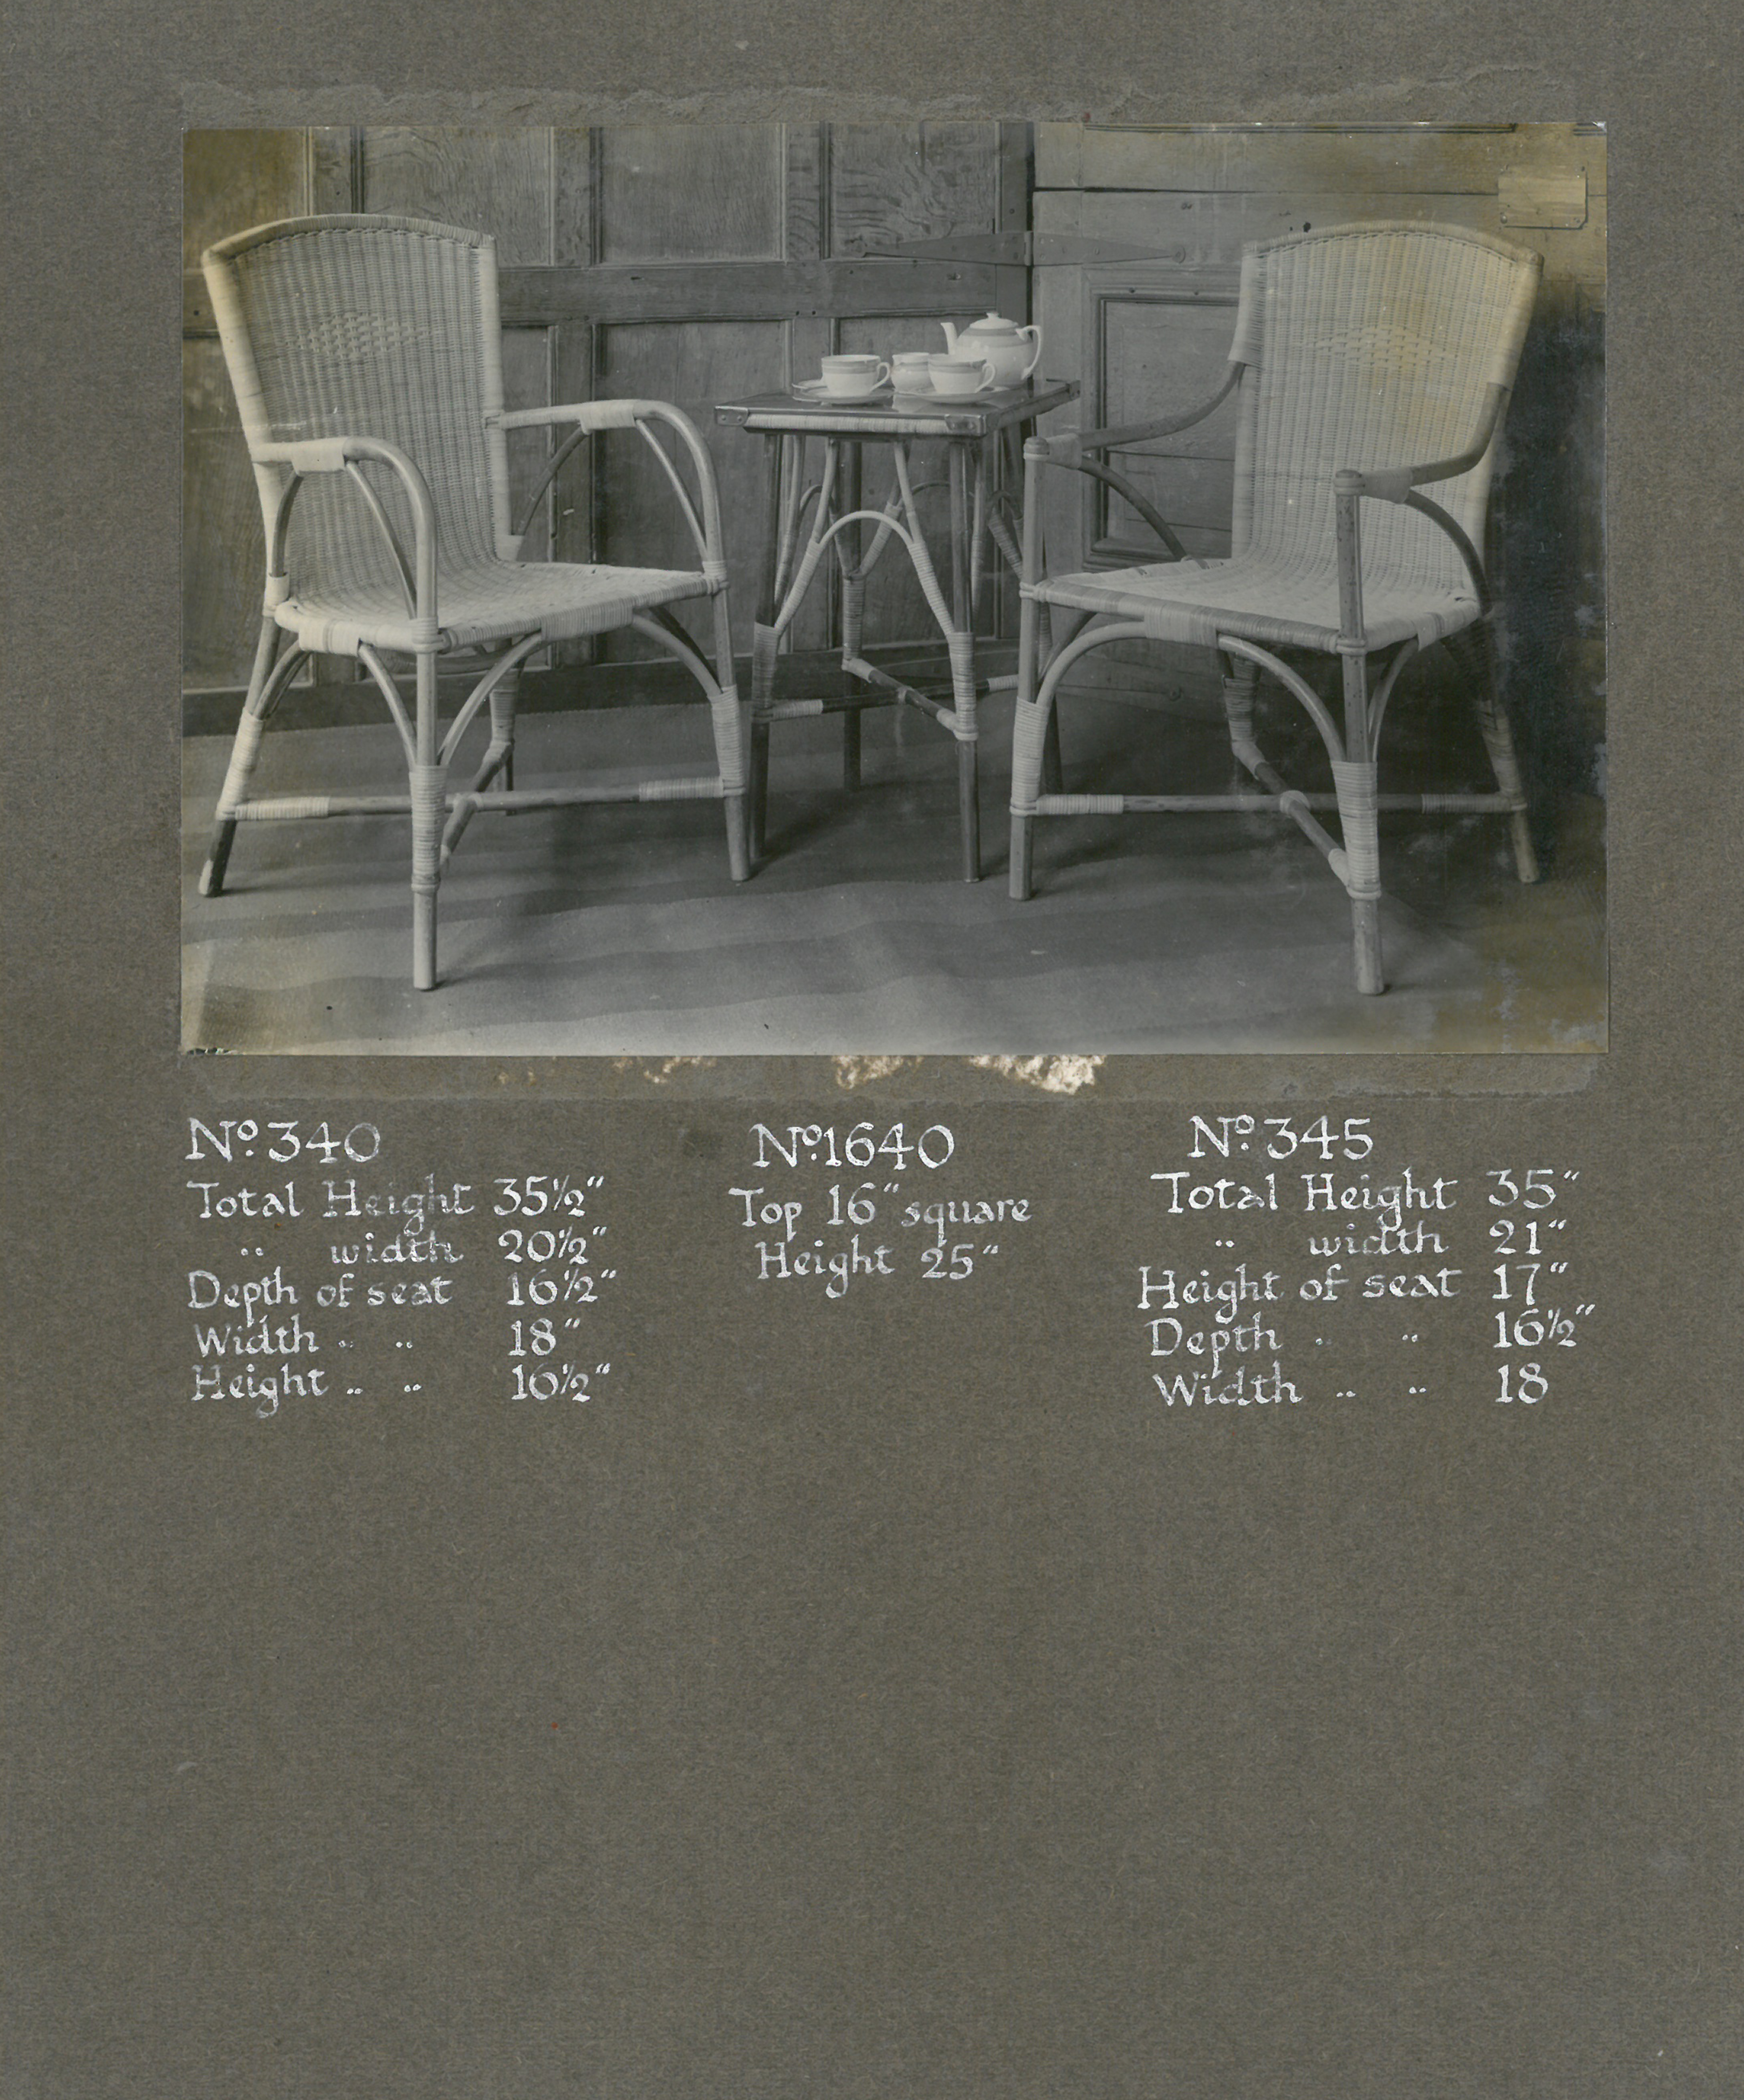 Nº. 340
Total Height 35½"
" width 20½"
Depth of seat 16½"
Width " " 18"
Height " " 16½"
Nº. 1640
Top 16" square
Height 25"
Nº. 345
Total Height 35"
" width 21"
Height of seat 17"
Depth " " 16½"
Width " " 18